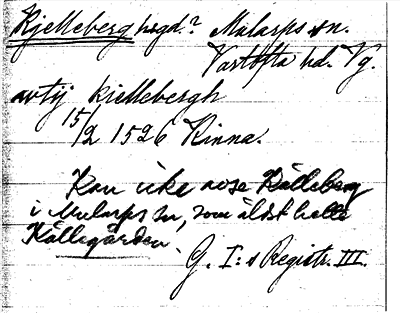 Kjelleberg hsgd.? Mularps sn.
Vartofta hd. Vg.
avtij kiellebergh
15/2 1526 Kinna.
Kan icke avse Källeberg
i Mularps sn, som äldst hette
Källegården.
G. I:s Registr. III.